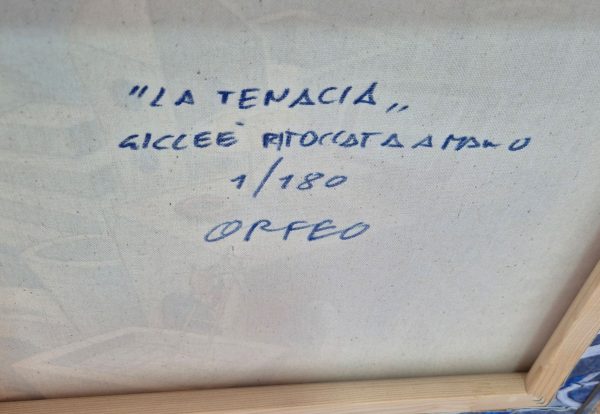 "LA TENACIA„
GICLEE RITOCCATA A MANO
1/180
ORFEO